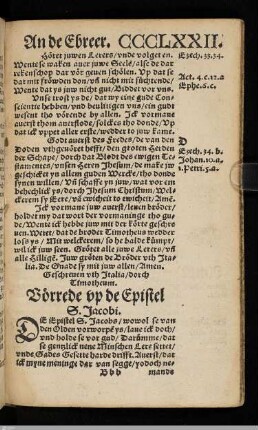 An de Ebreer. CCCLXXII.
Höret juwen Lerers/vnde volget en.
Wente se waken auer juwe Seele/alse de dar
rekenschop dar vör geuen schölen. Vp dat se
dat mit fröwden don/vñ nicht mit süchtende/
Wente dat ys juw nicht gut/Biddet vor vns.
Vnse trost ys de/dat wy eine gude Con-
scientie hebben/vnd beulitigen vns/ein gudt
wesent tho vörende by allen. Ick vormane
auerst thom aueruloede/solckes tho donde/Vp
dat ick vppet aller erste/wedder to juw kame.
Godt auerst des Fredes/de van den
Doden vth gevöret hefft/den groten Herden
der Schape/dorch dat Blodt des ewigen Te-
stamentes/vnsen Heren Jhesum/de make juw
geschicket yn allem guden Wercke/tho donde
synen willen/Vñ schaffe yn juw/wat vor em
behechlick ys/dorch Jhesum Christum/Wel-
ckerem sy Eere/vā ewicheit to ewicheit/Amē.
Jck vormane juw auerst/leuen bröder/
holdet my dat wort der vormaninge tho gu-
de/Wente ick hebbe juw mit der körte geschre-
uen. Wetet/dat de broder Timotheus wedder
loss ys/Mit welckerem/so he balde kumpt/
wil ick juw seen. Grötet alle juwe Lerers/vñ
alle Hilligē. Juw gröten de Bröder vth Ita-
lia. De Gnade sy mit juw allen/Amen.
Geschreuen vth Italia/dorch
Timotheum.
Vörrede vp de Epistel
S. Jacobi.
DE Epistel S. Jacobs/wowol se van
den Olden vorworpē ys/laue ick doch/
vnd holde se vor gud/Darümme/dat
se gentzlick nene Minschen Lere settet/
vnde Gades Gesette harde drifft. Auerst/dat
ick myne meninge dar van segge/yodoch ne-
Bbb mandes
Ezech. 33. 34.
Act. 4. c. 12. a
Ephe. 6. c.
D
Ezech. 34. b.
Johan. 10. a.
1. Petri. 5. a.